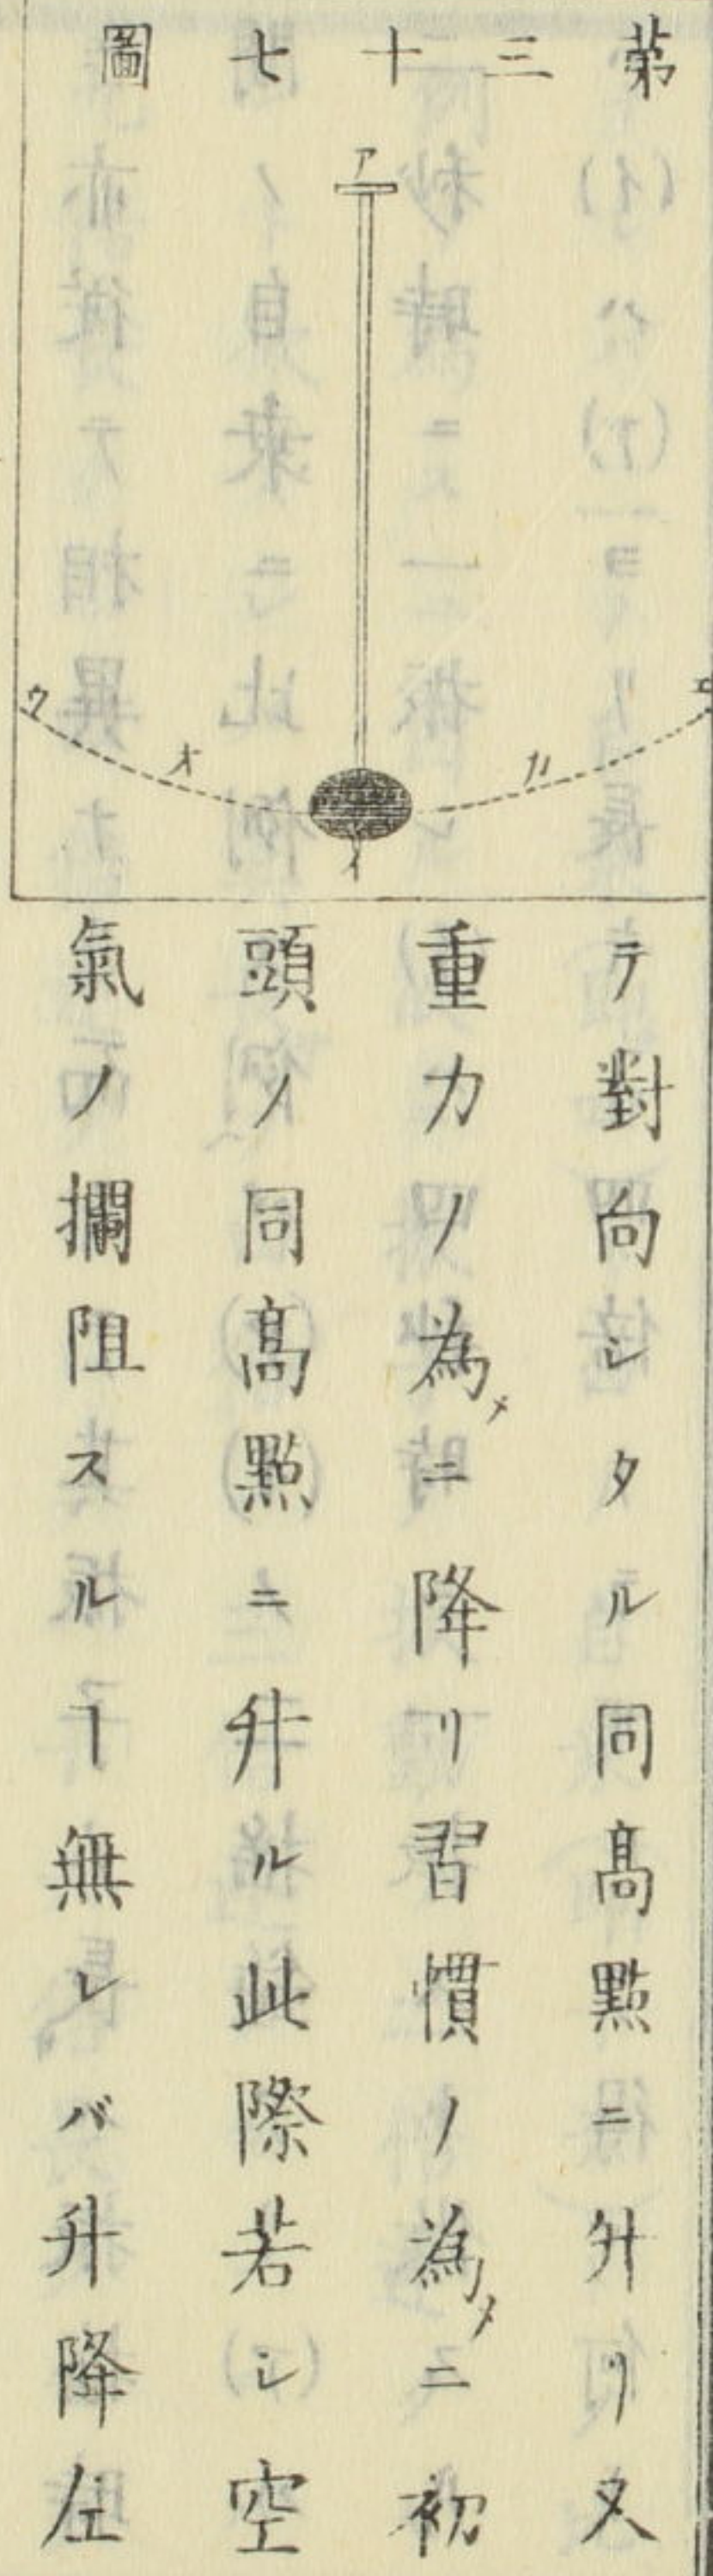 第三十七圖
ア
ウ
エ
オ
カ
イ
テ對向シタル同髙㸃ニ升リ又
重力ノ為メニ降リ習慣ノ為メニ初
頭ノ同髙㸃ニ升ル此際若シ空
氣ノ攔阻スルヿ無レバ升降左